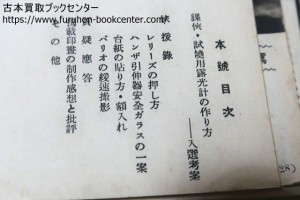 古本買取ブックセンター
https://www.furuhon-bookcenter.com/
本號目次
謀俠・試驗用露光計の作り方
――入選考案
暗室祕錄
レリーズの押し方
ハンザ引伸器安全ガラスの一案
台紙の貼り方・額入れ
バリオの緩速撮影
質疑應答
掲載印畫の制作感想と批評
その他